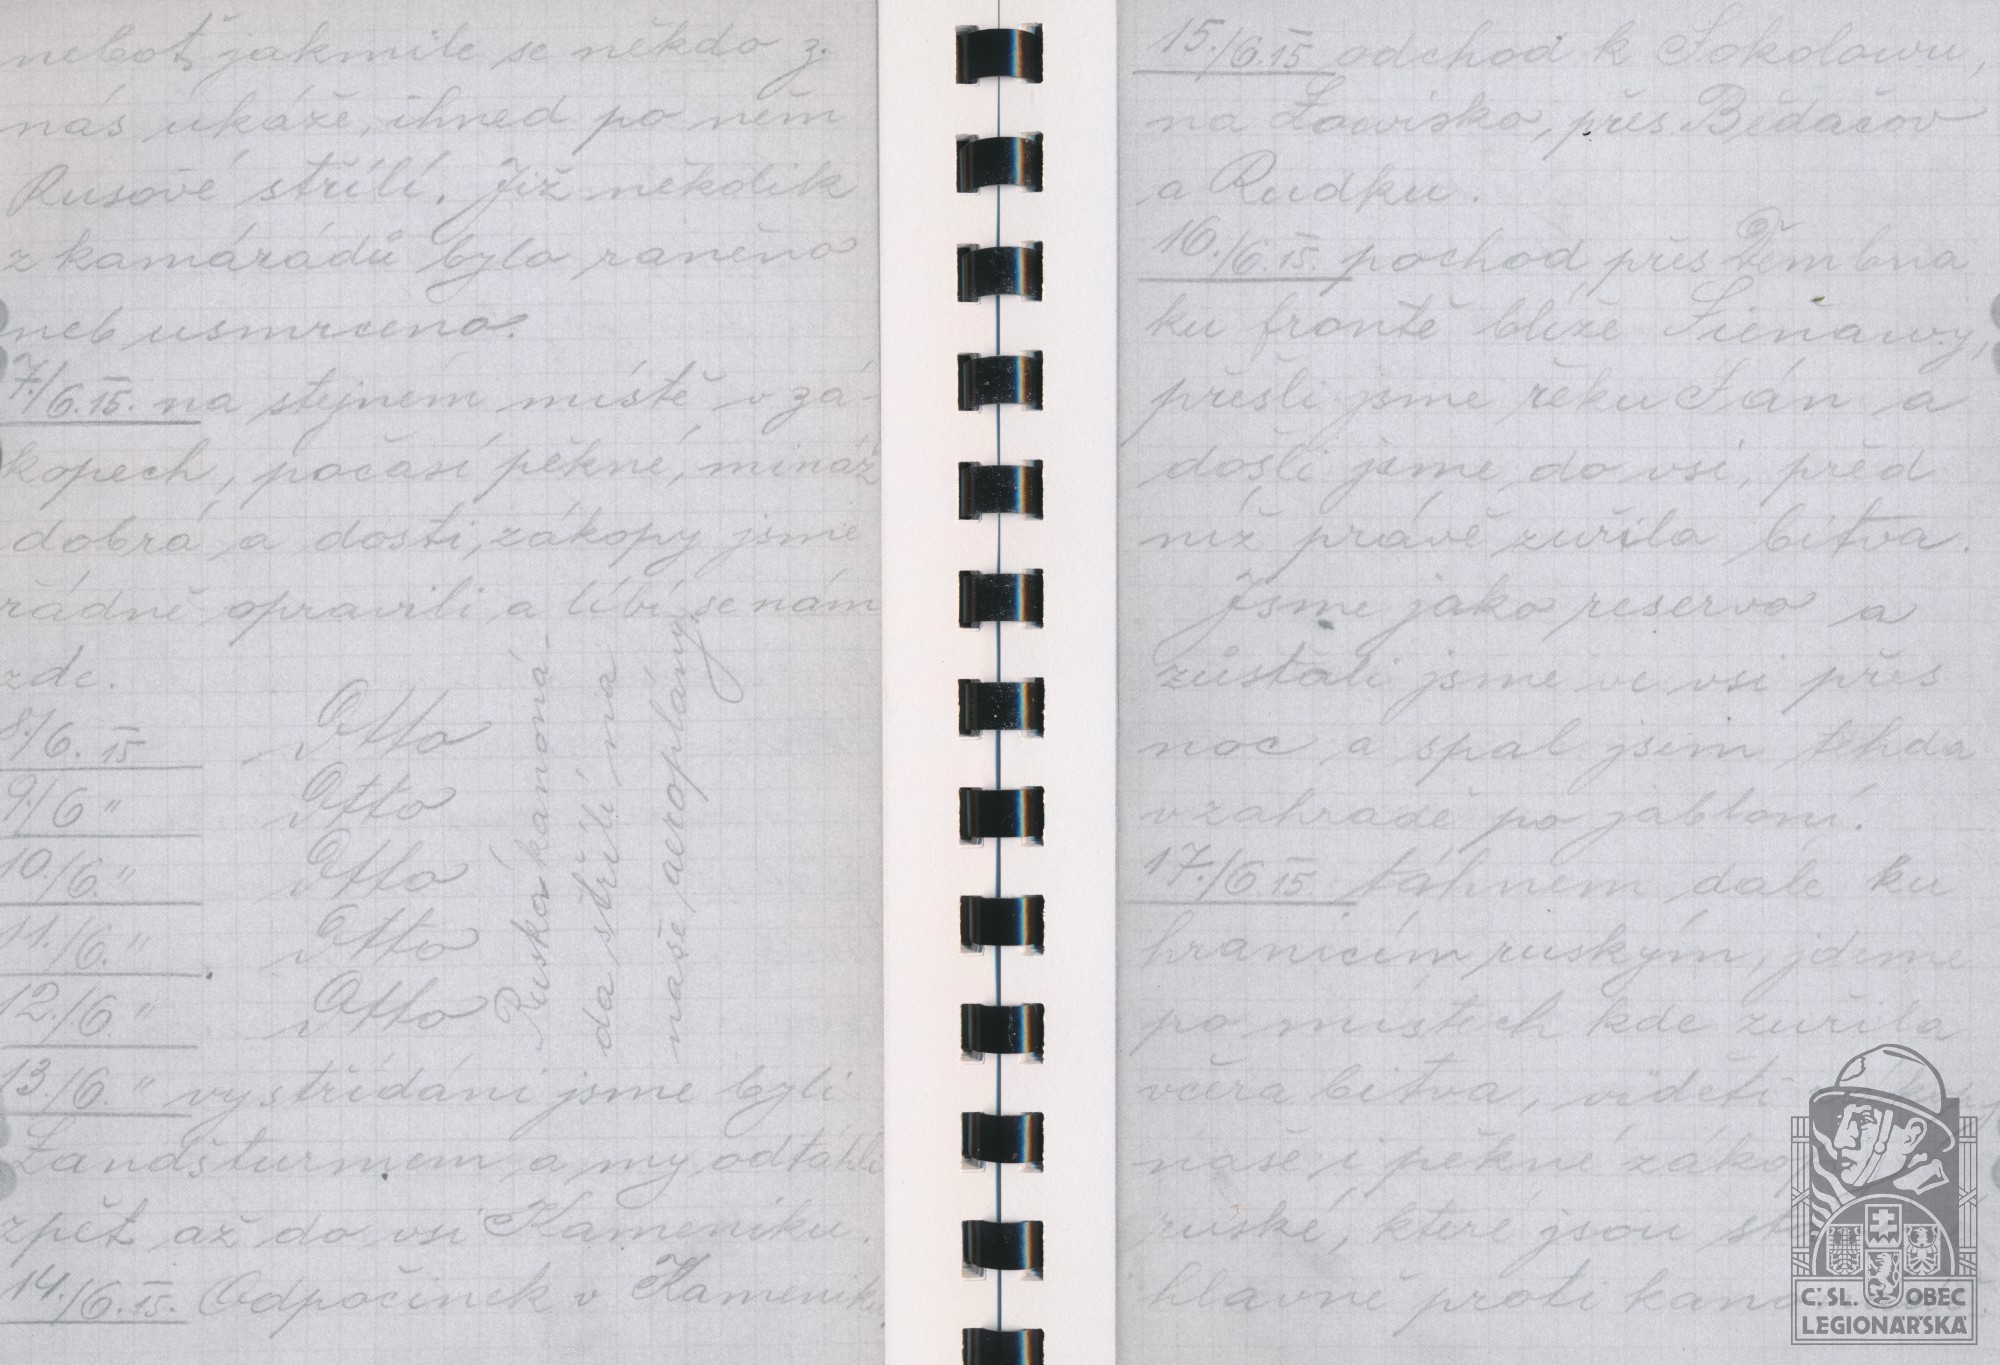 neboť, jakmile se někdo z.
nás ukáže, ihned po něm
Rusové střílí. Již několik
z kamárádů bylo raněno
neb usmrceno.
7./6. 15. na stejném místě v zá-
kopech, počasí pěkné, mináž
dobrá a dosti, zákopy jsme
řádně opravili a líbí se nám
zde.
8./6. 15 Otto
9./6 " Otto
10./6. " Otto
11./6. " Otto
12./6. " Otto
Ruská kanoná-
da střílí na
naše aeroplány.
13./6. " vystřídáni jsme byli
Landšturmem a my odtáhli
zpět až do vsi Kameniku.
14./6. 15. Odpočinek v Kameniku
15./6. 15 odchod k Sokolowu,
na Lowisko, přes Bědačov
a Rudku.
16./6. 15. pochod přes Dembna
ku frontě blíže Sienawy,
přešli jsme řeku Sán a
došli jsme do vsi, před
níž právě zuřila bitva.
Jsme jako reserva a
zůstali jsme ve vsi přes
noc a spal jsem tehda
v zahradě po jabloní.
17./6 15 táhnem dále ku
hranicím ruským, jdeme
po místech kde zuřila
včera bitva, viděti
naše i pěkné
ruské, které jsou
hlavně proti
Č. SL. OBEC
LEGIONÁŘSKÁ